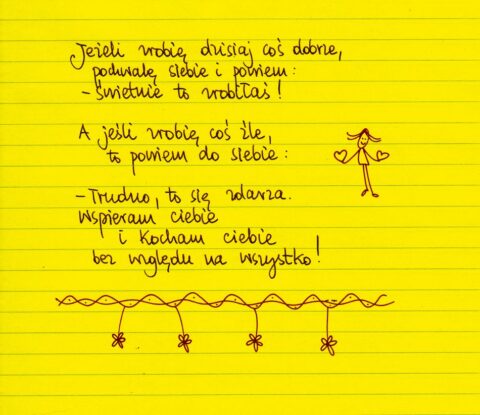 Jeżeli zrobię dzisiaj coś dobrze,
pochwalę siebie i powiem:
- Świetnie to zrobiłaś!
A jeśli zrobię coś źle,
to powiem do siebie:
- Trudno, to się zdarza.
Wspieram ciebie
i Kocham ciebie
bez względu na wszystko!